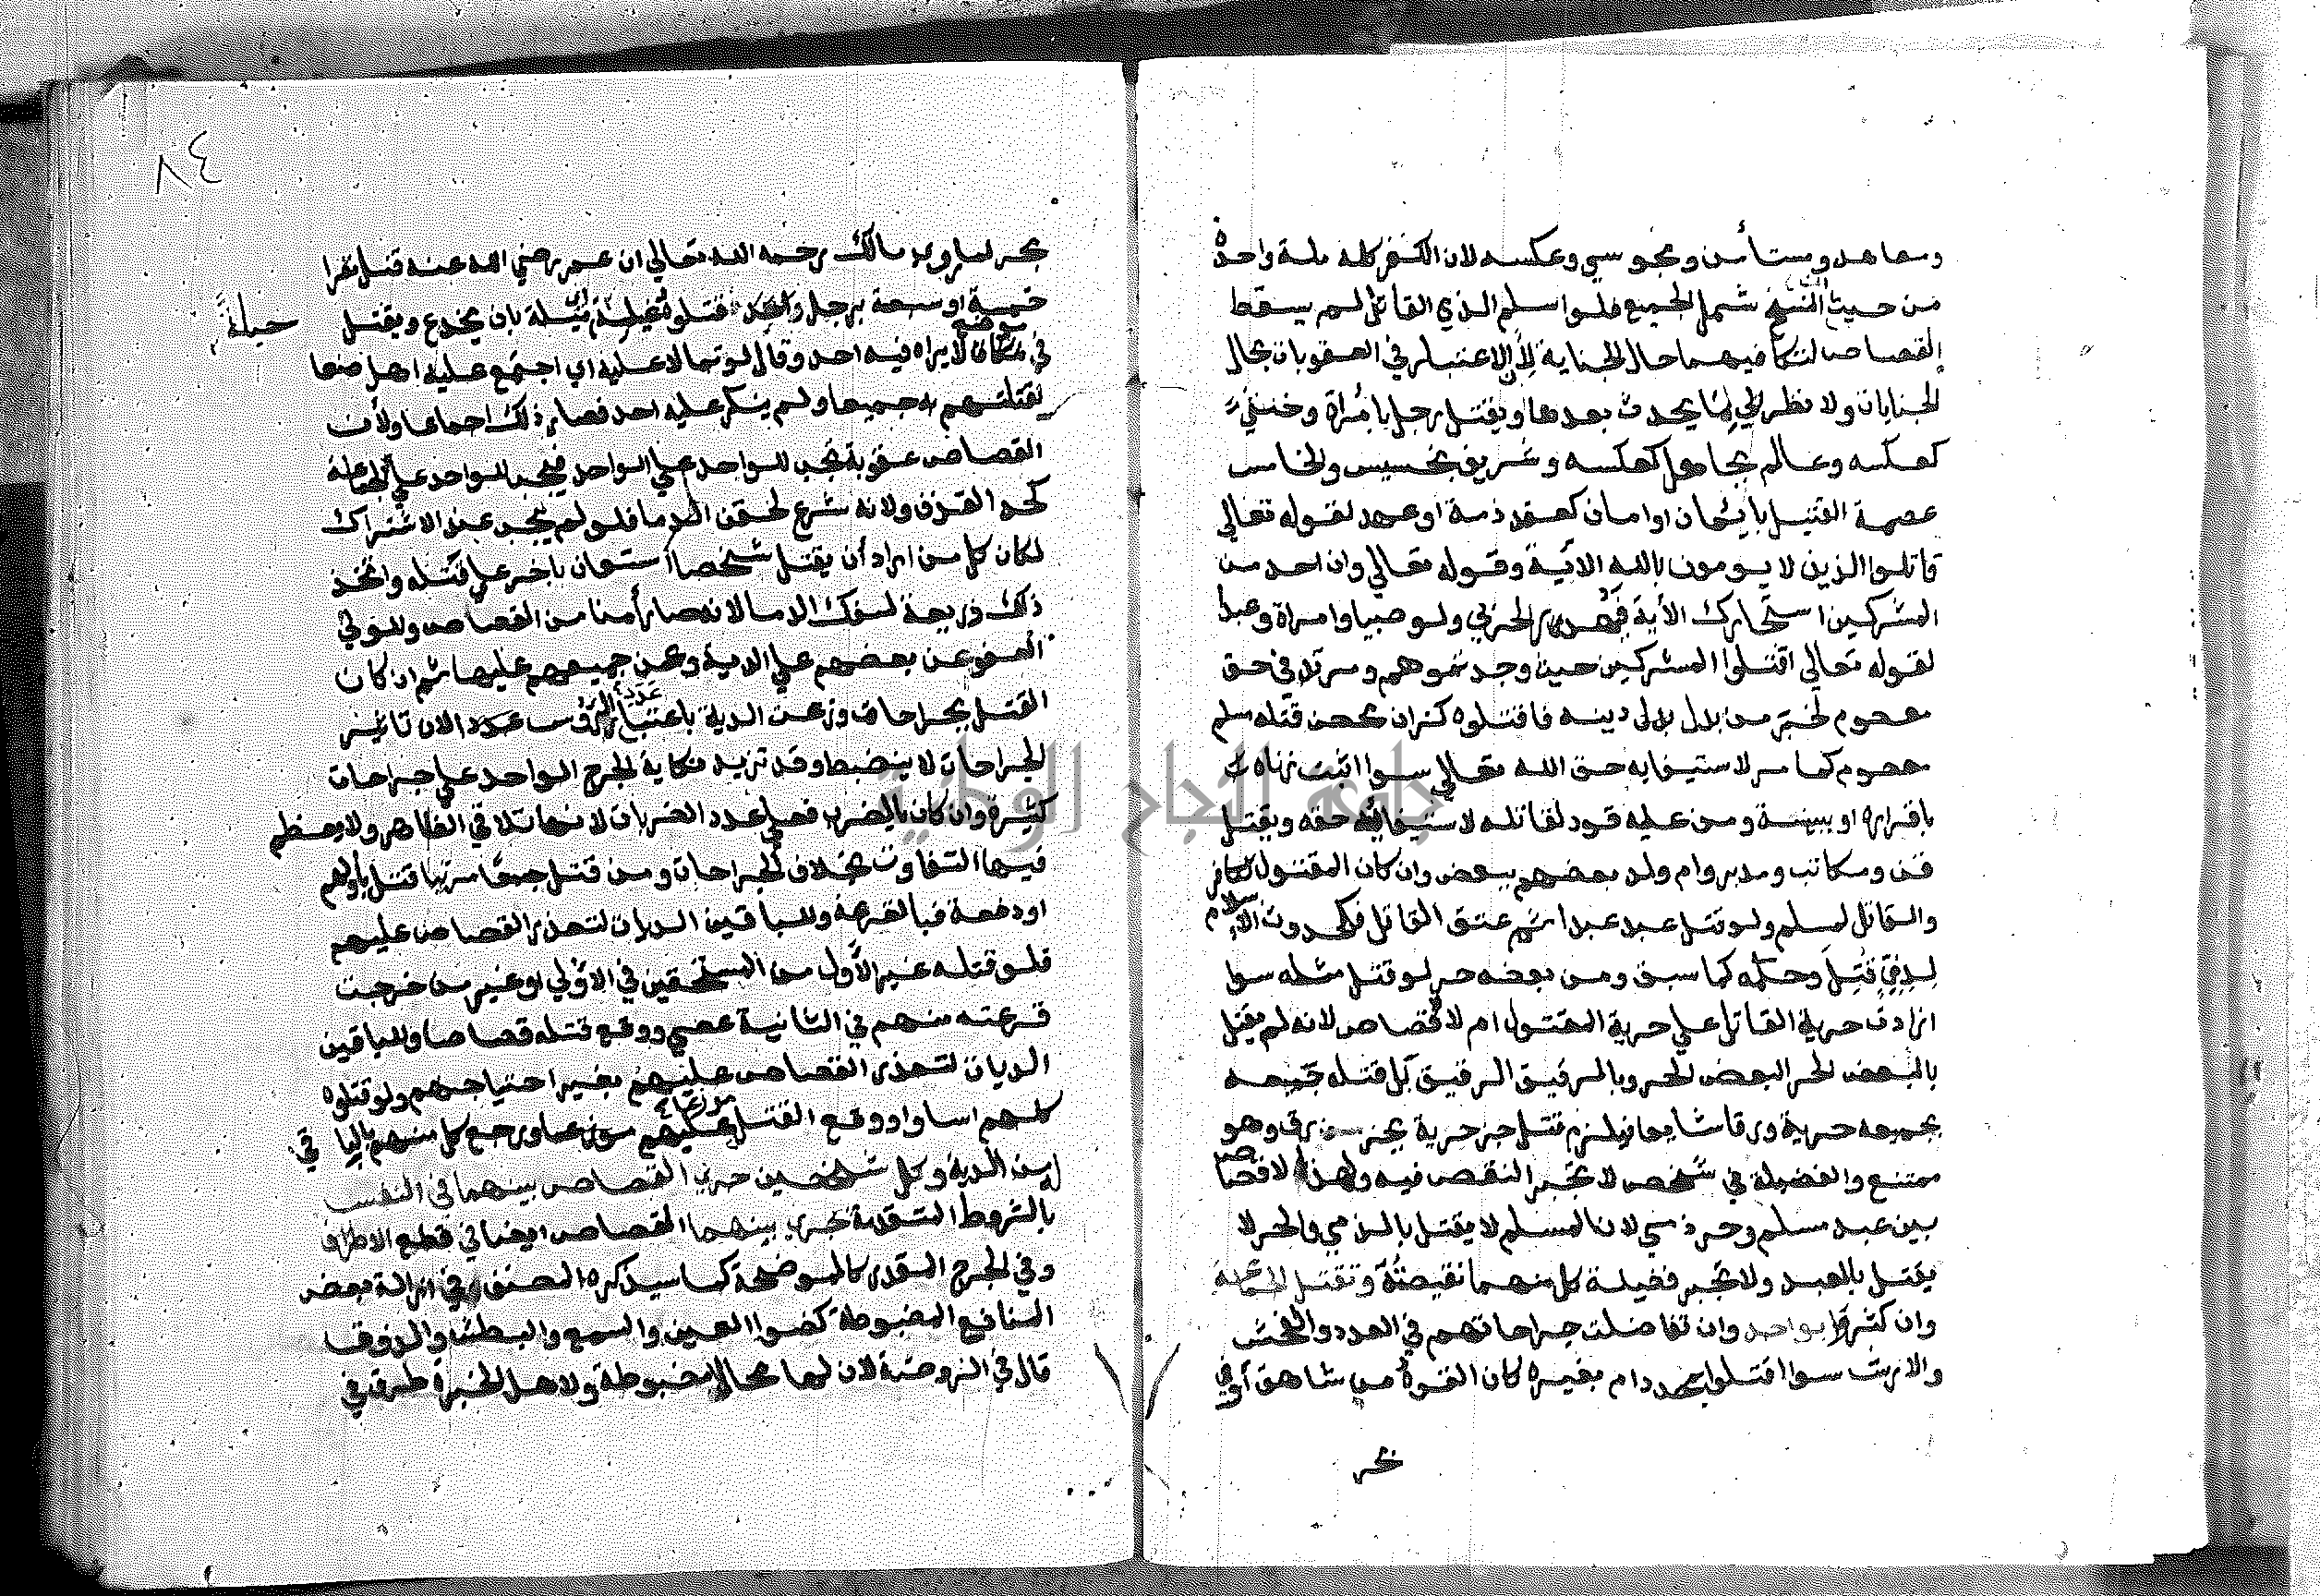 ومعاهد ومستأمن ومجوسي وعكسه لان الكفر كله ملة واحدة
من حيث النسخ شمل الجميع فلو اسلم الذي القاتل لم يسقط
القصاص لتكافيهما حال الجناية لأن الاعتبار في العقوبات بحال
الجنايات ولا نظر الي لما يحدث بعدها ويقتل رجل بامرأة وخنثي
كعكسه وعالم بجاهل كعكسه وشريف بخسيس والخامس
عصمة القتيل بايمان او امان كعقد ذمة او عهد لقوله تعالي
قاتلوا الذين لا يومون بالله الاية وقوله تعالي وان احد من
المشركين استجارك الأية فيهدر الحربي ولو صبيا وامراة وعبدا
لقوله تعالي اقتلوا المشركين حيث وجدتموهم ومرتد في حق
معصوم لخبر من بدل دينه فاقتلوه كزان محصن قتله مسلم
معصوم كما مر لاستيفايه حق الله تعالي سوا اثبت زناه
باقراره او ببينة ومن عليه قود لقاتله لاستيفائه حقه ويقتل
قن ومكاتب ومدبر وام ولد بعضهم ببعض وان كان المقتول لكافر
والقاتل لمسلم ولو قتل عبد عبدا ثم عتق القاتل فكحدوث الاسلام
لذمي قتل وحكمه كما سبق ومن بعضه حر لو قتل مثله سوا
ازادت حرية القاتل علي حرية المقتول ام لا قصاص لانه لم يقتل
بالبعض الحر البعض الحر وبالرقيق الرقيق بل قتله جميعه
بجميعه حرية ورقا شايعا فيلزم قتل جزء حرية بجزء رق وهو
ممتنع والفضيلة في شخص لا تجبر النقص فيه ولهذا لا قصاص
بين عبد مسلم وحر ذمي لان المسلم لا يقتل بالذمي والحر لا
يقتل بالعبد ولا تجبر فضيلة كل منهما نقيصته وتقتل الجماعة
وان كثروا بواحد وان تفاضلت جراحاتهم في العدد والفحش
والارش سوا اقتلوا بمحدد ام بغيره كان القوه من شاهق أو في
بحر
٨٤
بحر لما روي مالك رحمه الله تعالي ان عمر رضي الله عنه قتل نفرا
خمسة او سبعة برجل واحد قتلوه غيلة أي حيلة بان يخدع ويقتل
حيلة
في موضع لا يراه فيه احد وقال لو تمالا عليه اي اجتمع عليه اهل صنعا
لقتلتهم به جميعا ولم ينكر عليه احد فصار ذلك اجماعا ولأن
القصاص عقوبة تجب للواحد علي الواحد فيجب للواحد علي الجماعة
كحد القذف ولانه شرع لحقن الدما فلو لم يجب عند الاشتراك
لكان كل من اراد أن يقتل شخصا استعان باخر علي قتله واتخذ
ذلك ذريعة لسفك الدما لانه صار أمنا من القصاص وللولي
العفو عن بعضهم علي الدية وعن جميعهم عليها ثم ان كان
القتل بجراحات وزعت الدية باعتبار عدد الرؤس لان تاثير
الجراحات لا ينضبط وقد تزيد نكاية الجرح الواحد علي جراحات
كثيرة وان كان بالضرب فعلي عدد الضربات لانها تلاقي الظاهر ولا يعظم
فيها التفاوت بخلاف الجراحات ومن قتل جمعا مرتبا قتل بأولهم
او دفعة فبالقرعة وللباقين الديات لتعذر القصاص عليهم
فلو قتله غير الأول من المستحقين في الاولي او غير من خرجت
قرعته منهم في الثانية عصي ووقع قتله قصاصا وللباقين
الديات لتعذر القصاص عليهم بغير اختياجهم ولو قتلوه
كلهم اساوا ووقع القتل عليهم موزعا ورجع كل منهم بالباقي
من الدية وكل شخصين جري القصاص بينهما في النفس
بالشروط المتقدمة تجري بينهما القصاص ايضا في قطع الاطراف
وفي الجرح المقدر كالموضحة كما سيذكره المصنف وفي ازالة بعض
المنافع المضبوطة كضوا العين والسمع والبطش والذوق
قال في الروضة لان لها محالا مضبوطة ولاهل الخبرة طرق في
جامعة النجاح الوطنية